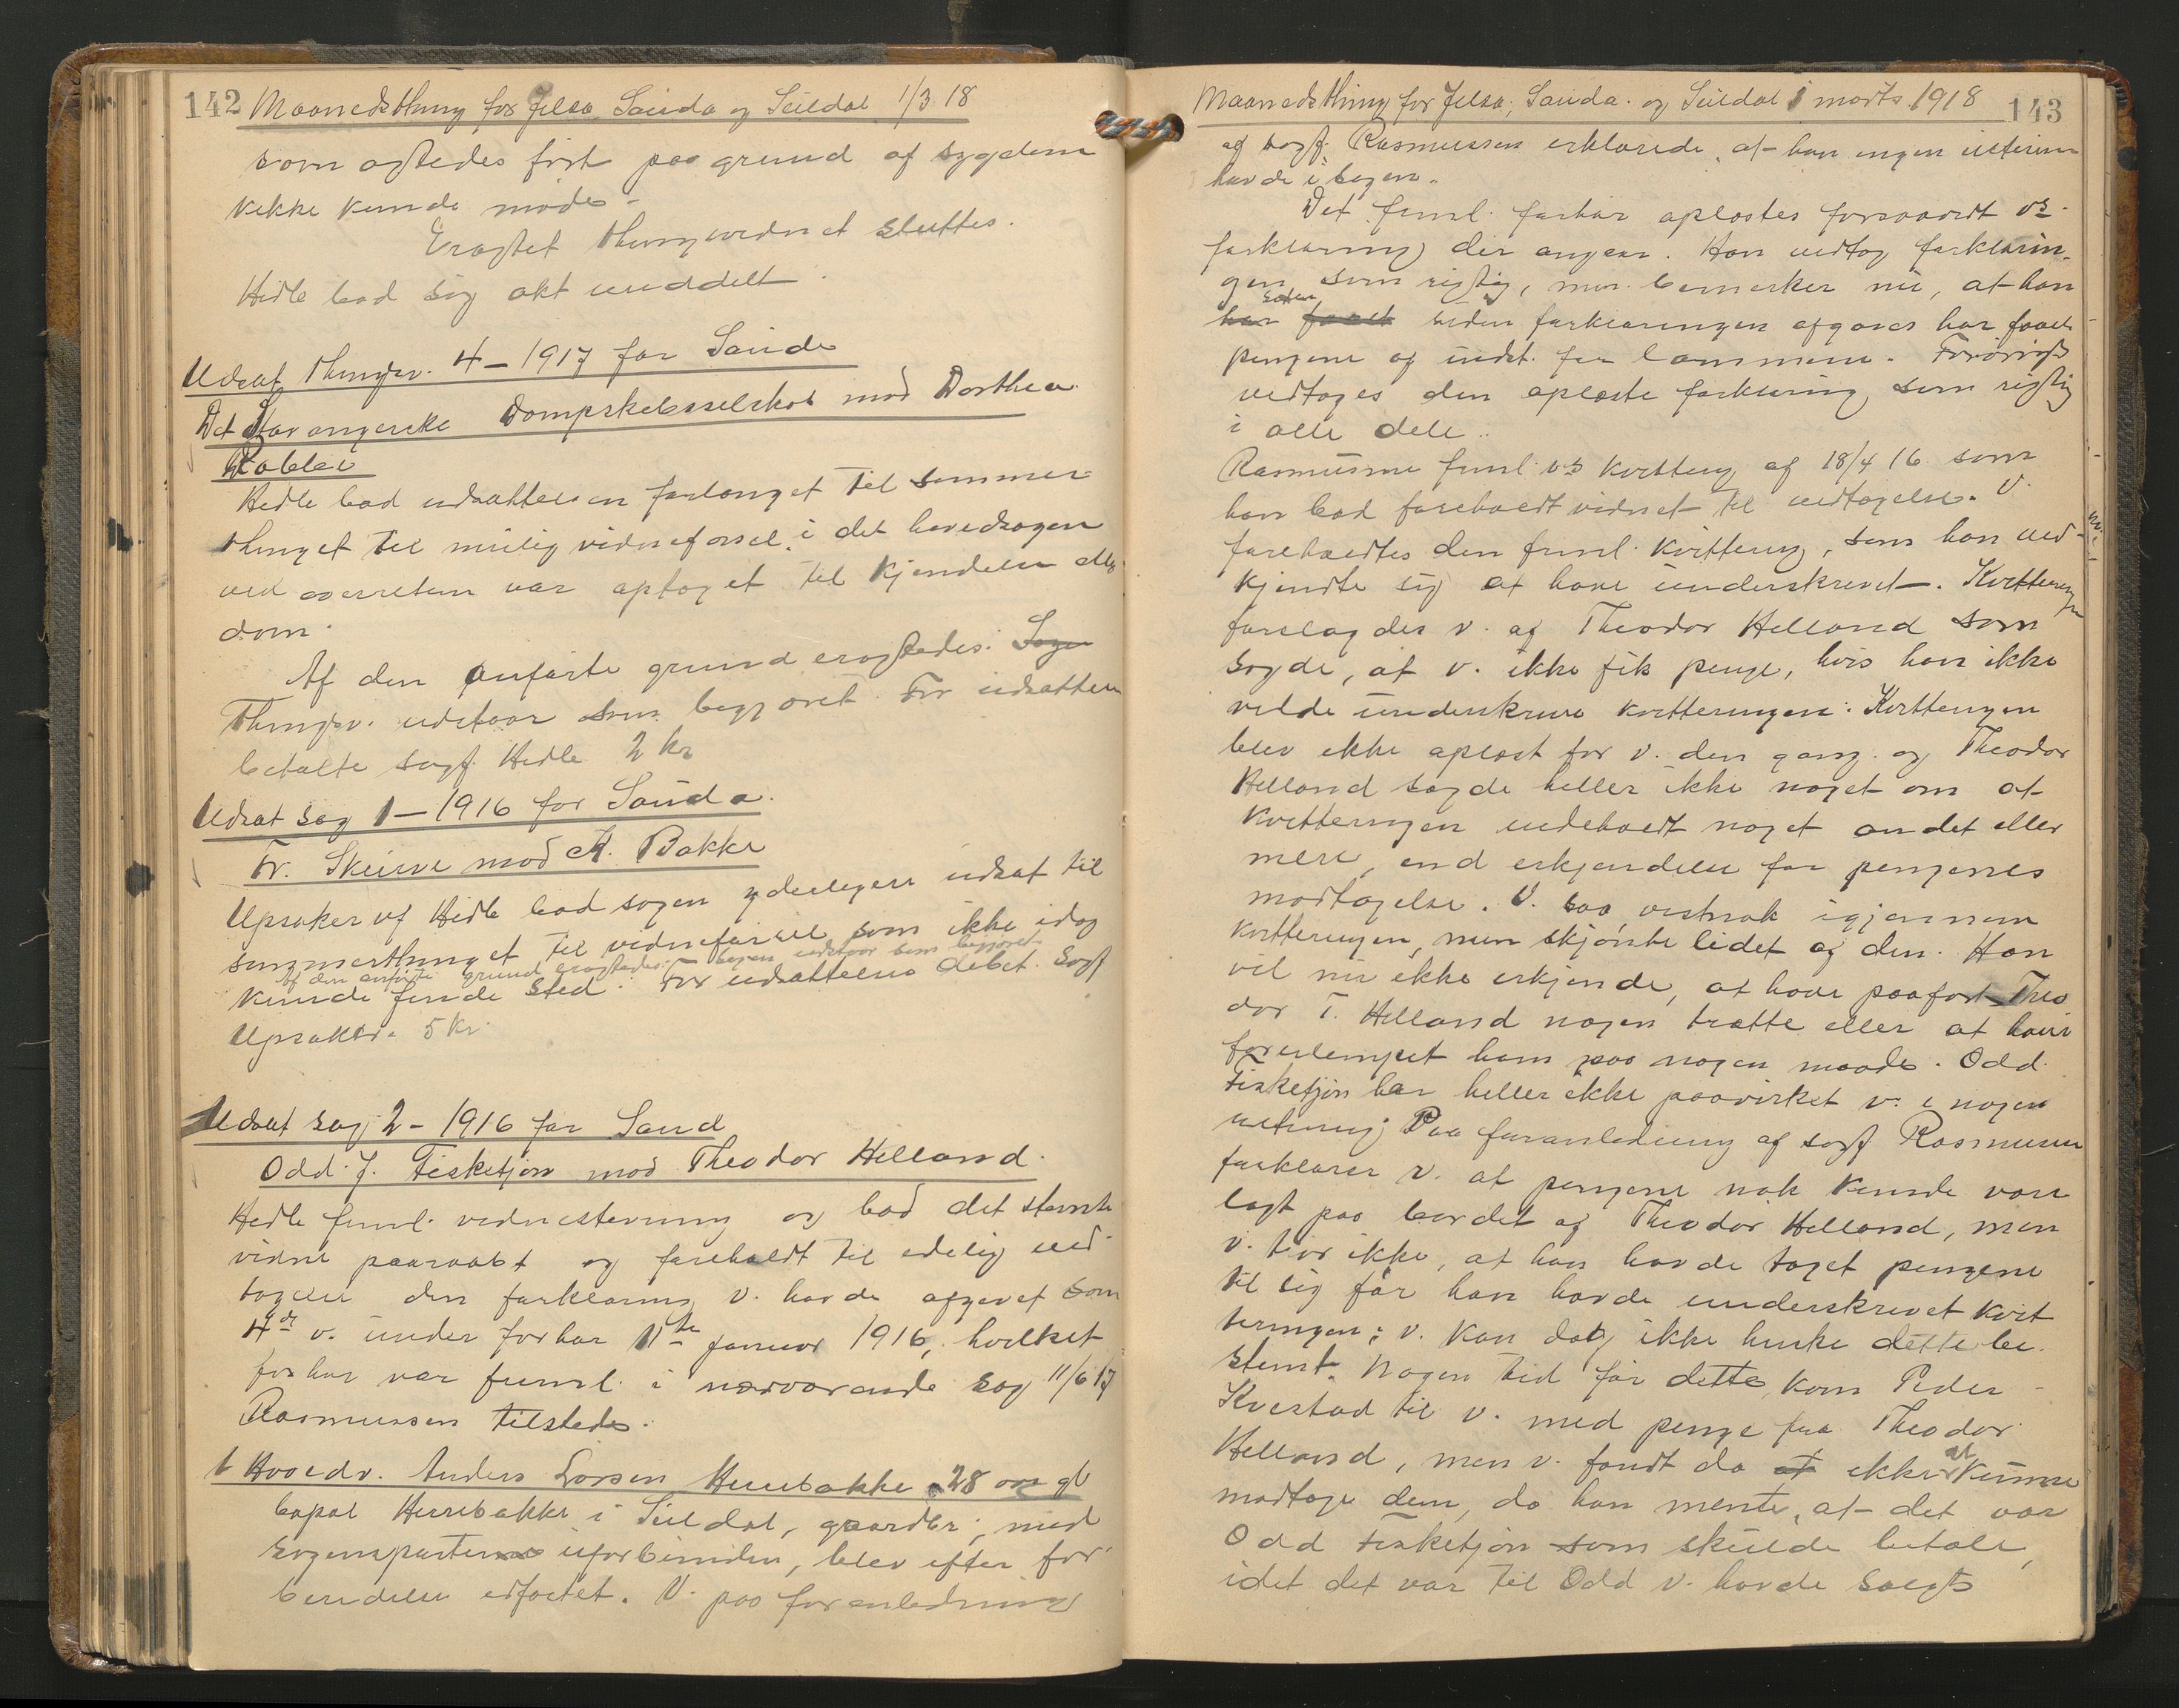 142 Maanedsthing for Jelsa Sauda og Suldal 1/3 18
som agtedes först paa grund af sygdom
ikke kunde möde.
Eragtet thingvidnet sluttes.
Hidle bad sig akt meddelt.
Udsat thingsv. 4 - 1917 for Sauda
Det Stavangerske Dampskibsselskab mod Dorthea
Rabbei
Hidle bad udsættelsen forlænget til sommer
thinget til mulig vidneførsel, i det hovedsagen
ved overretten var optaget til kjendelse ell.
dom.
Af den anførte grund eragtedes: Sagen
Thingsv. udstaar som begjæret. For udsættelsen
betalte sagf. Hidle 2 kr
Udsat sag 1 - 1916 for Sauda.
Fr. Skeie mod A. Bakke
Opsøker vf Hidle bad sagen yderligere udsat til
sommerthinget til vidneførsel som ikke idag
Af den anførte grund eragtedes: Sagen udstaar som begjæret
kunde finde sted. For udsættelsen debet. Sagf
5 kr.
Udsat sag 2 - 1916 for Sand
Odd J. Fisketjön mod Theodor Helland.
Hidle freml. vidnestevning og bad det stevnte
vidne paaraabt og foreholdt til edelig ved-
tagelse den forklaring v. havde afgivet som
4de v. under forhør 11te januar 1916, hvilket
forhør var freml. i nærværende sag 11/6 17
Rasmussen tilstede.
1 Hovedv. Anders Larsen Herrebakke 28 aar gl
bopæl Herrebakke i Suldal, gaardbr., med
sagens parter uforbunden, blev efter for
beredelse edfæstet. V. paa foranledning
Maanedsthing for Jelsa, Sauda og Suldal 1 marts 1918 143
af sagf. Rasmussen erklærede, at han ingen interesse
havde i sagen.
Det freml. forhør oplæstes forsaavidt vs.
forklaring der angaar. Han vedtog forklarin-
gen som rigtig, men bemerker nu, at han
siden
har faaet siden forklaringen afgaves har faaet
pengene og indst. for lammene. Forøvrigt
vedtoges den oplæste forklaring som rigtig
i alle dele.
Rasmussen freml. vs kvittering af 18/4 16 som
han bad foreholdt vidnet til vedtagelse. V.
foreholdtes den freml. kvittering, som han ved-
kjendte sig at have underskrevet. Kvitteringen
forelagdes v. af Theodor Helland som
sagde, at v. ikke fik penge, hvis han ikke
vilde underskrive kvitteringen. Kvitteringen
blev ikke oplæst for v. den gang og Theodor
Helland sagde heller ikke noget om at
kvitteringen indeholdt noget andet eller
mere, end erkjendelse for pengenes
modtagelse. V. saa vistnok igjennem
kvitteringen, men skjønte lidet af den. Han
vil nu ikke erkjende, at have paaført Theo
dor T. Helland nogen trætte eller at have
forulempet ham paa nogen maade. Odd
Fisketjön har heller ikke paavirket v. i nogen
retning. Paa foranledning af sagf Rasmussen
forklarer v. at pengene nok kunde være
lagt paa bordet af Theodor Helland, men
v. tror ikke, at han havde taget pengene
til sig før han havde underskrevet kvit
teringen; v. kan dog ikke huske dette be-
stemt. Nogen tid før dette kom Peder
Kvestad til v. med penge fra Theodor
Helland, men v. fandt da at ikke at kunne
modtage dem, da han mente, at det var
Odd Fisketjön som skulde betale,
idet det var til Odd v. havde solgt